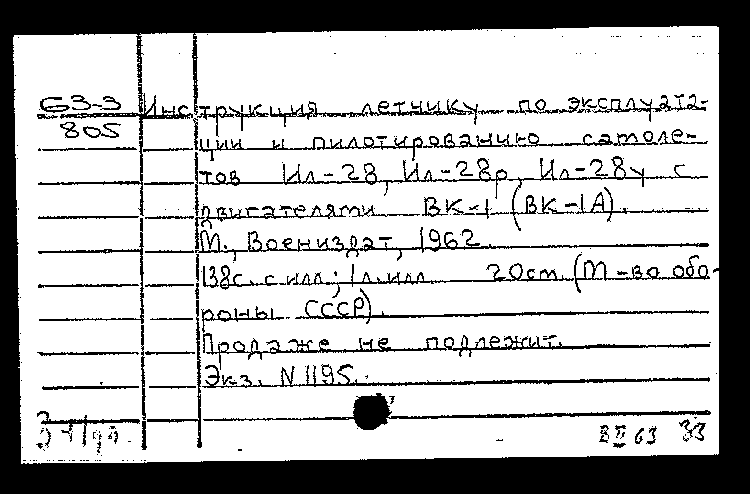 63-3 Инструкция летчику по эксплуата-
805 ции и пилотированию самоле-
тов Ил-28, Ил-28р, Ил-28у с
двигателями ВК-1 (ВК-1А).
М., Воениздат, 1962.
138с. с илл.; 1л. илл. 20см. (М-во обо-
роны СССР).
Продаже не подлежит.
Экз. N 1195.
В II 63 33